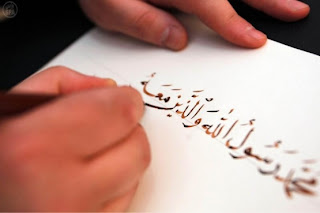 مُحَمَّدٌ رَسُولُ اللَّهِ وَالَّذِينَ مَعَهُ